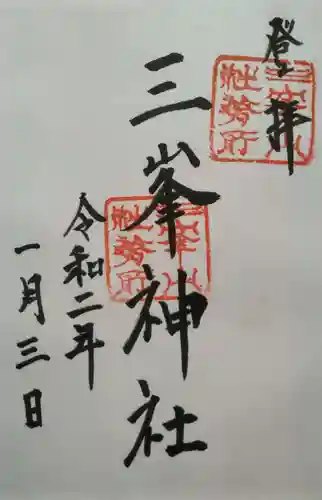 登拝
三峯神社
令和二年
一月三日
三峯山
社務所
三峯山
社務所